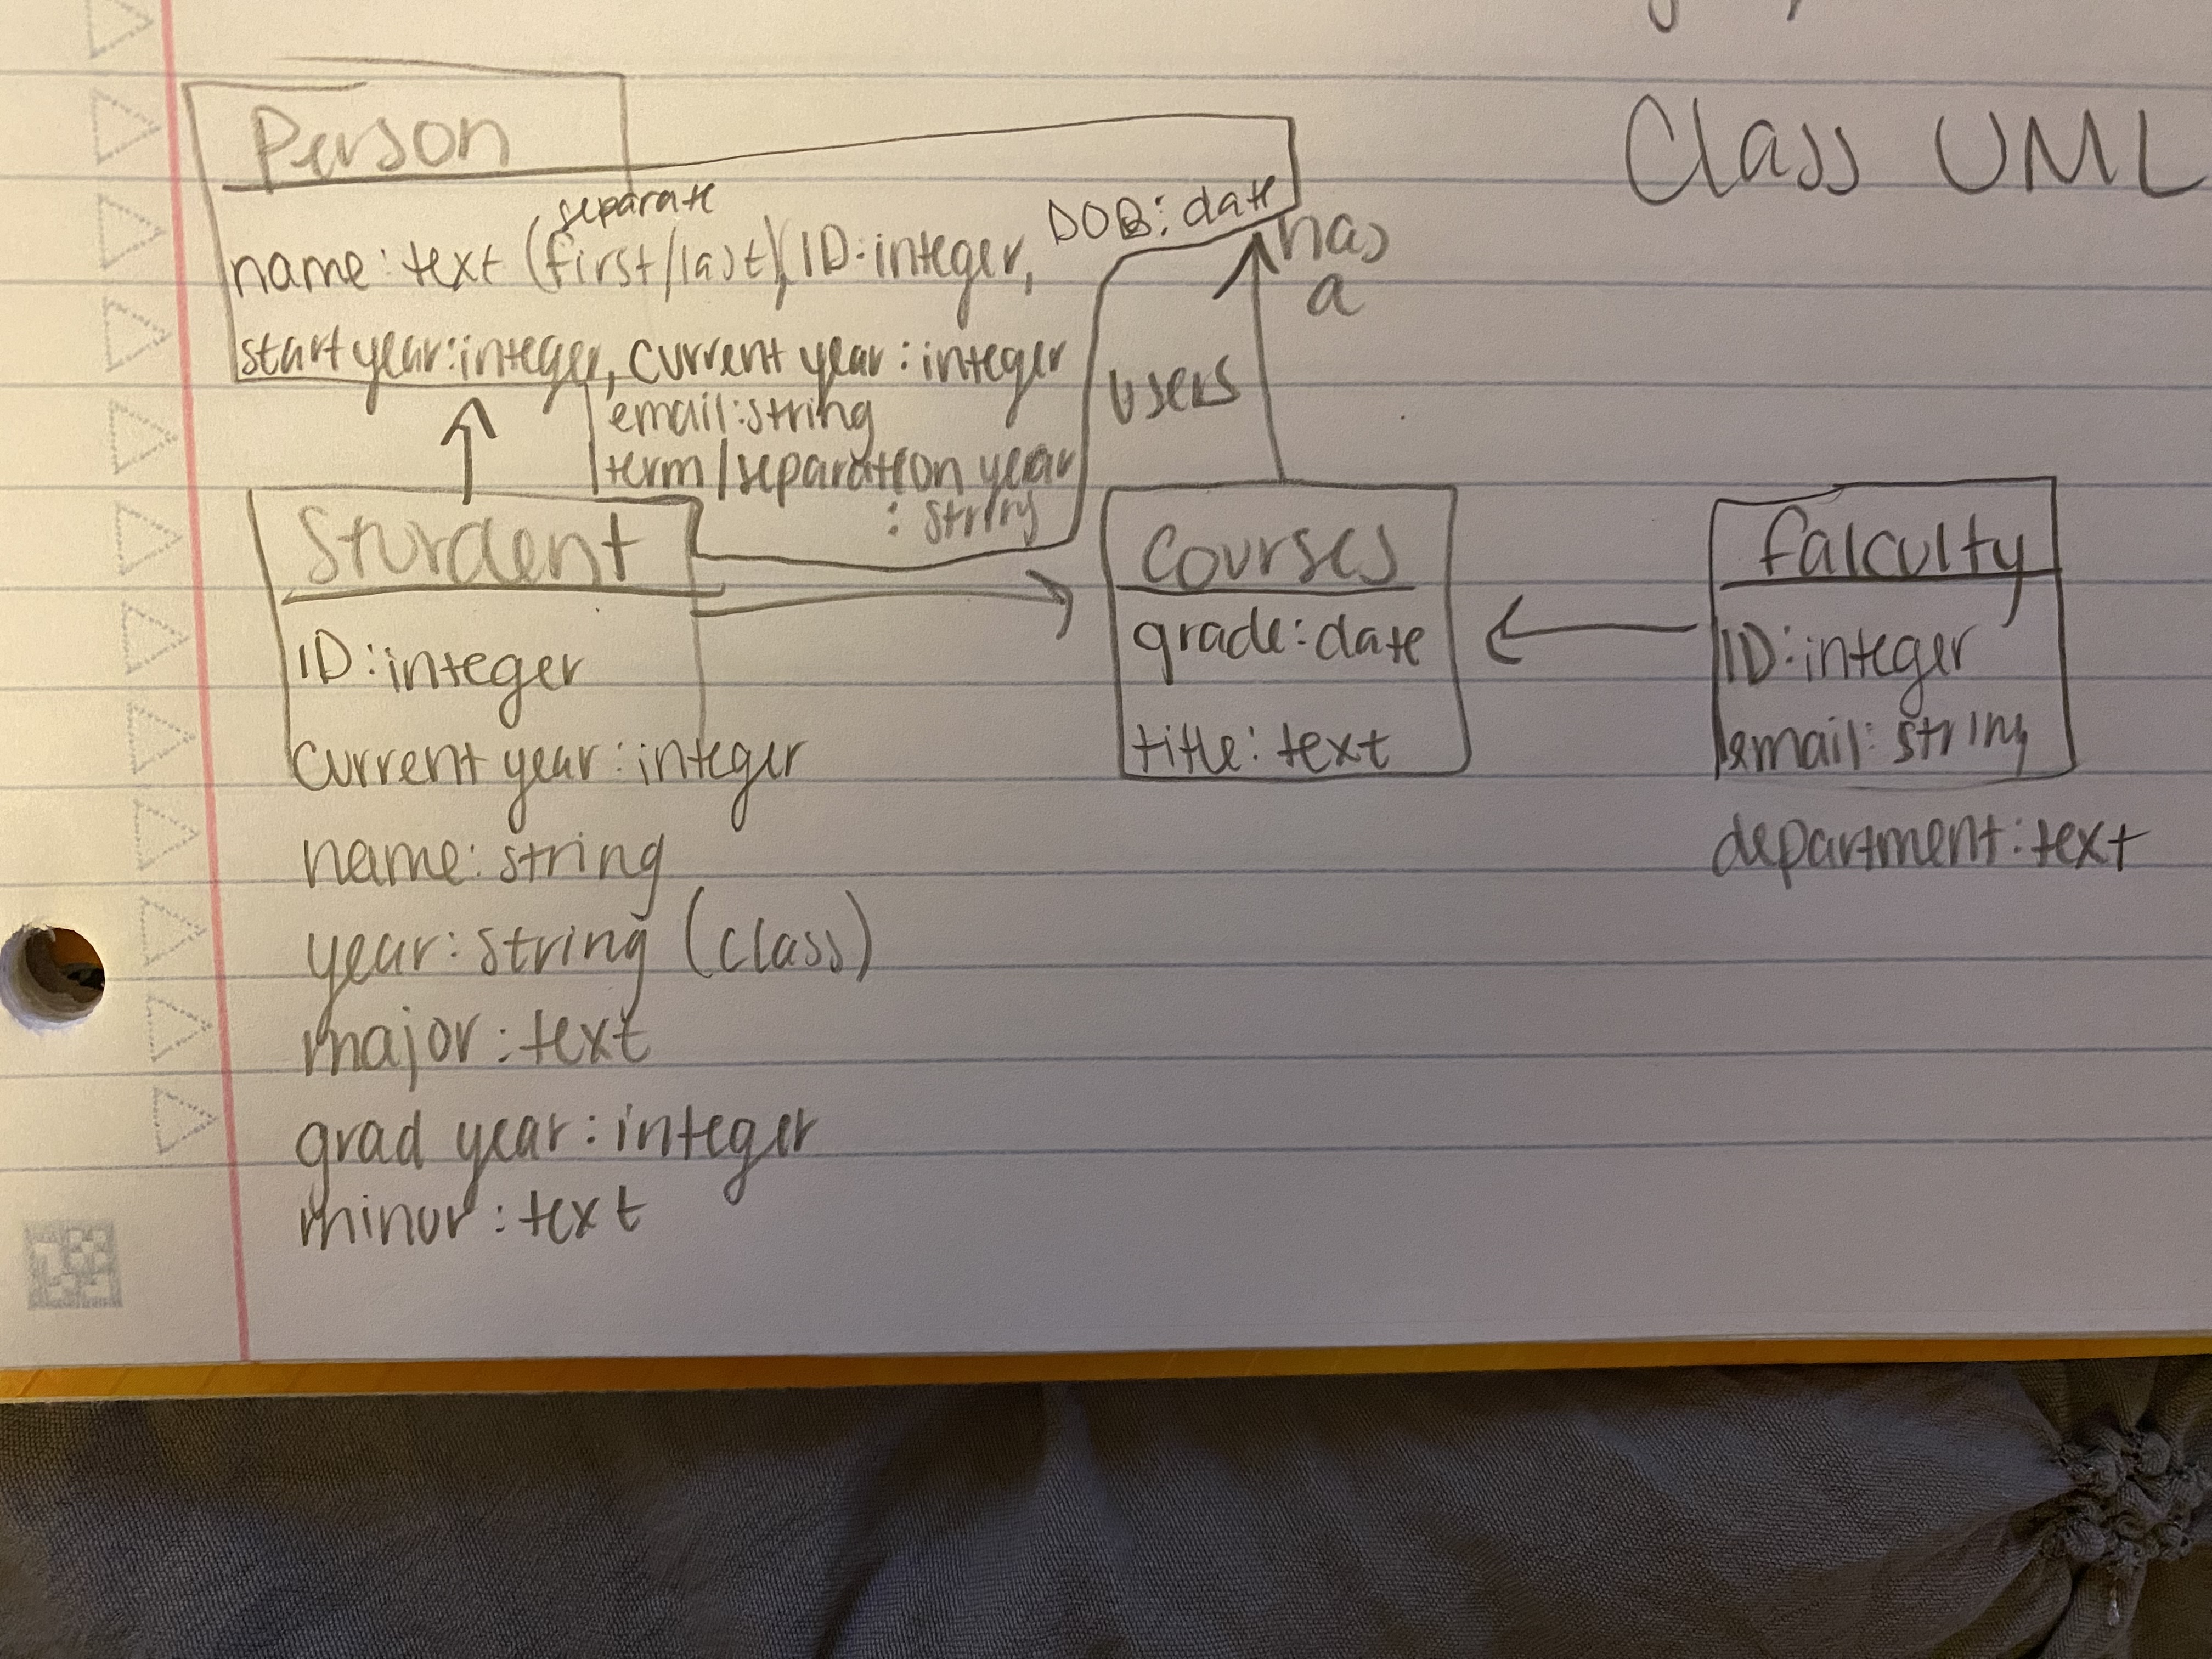 Class UML
Person
separate
name: text (first/last) ID: integer, DOB: date
start year: integer, current year: integer
email: string
term/separation year
: string
has
a
users
Student
ID: integer
current year: integer
name: string
year: string (class)
major: text
grad year: integer
minor: text
Courses
grade: date
title: text
falculty
ID: integer
email: string
department: text